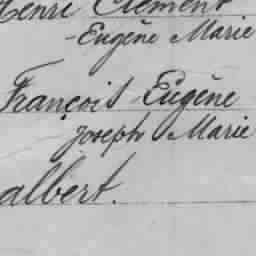 Henri Clément
-Eugène Marie
François-Eugène
Joseph Marie
albert.